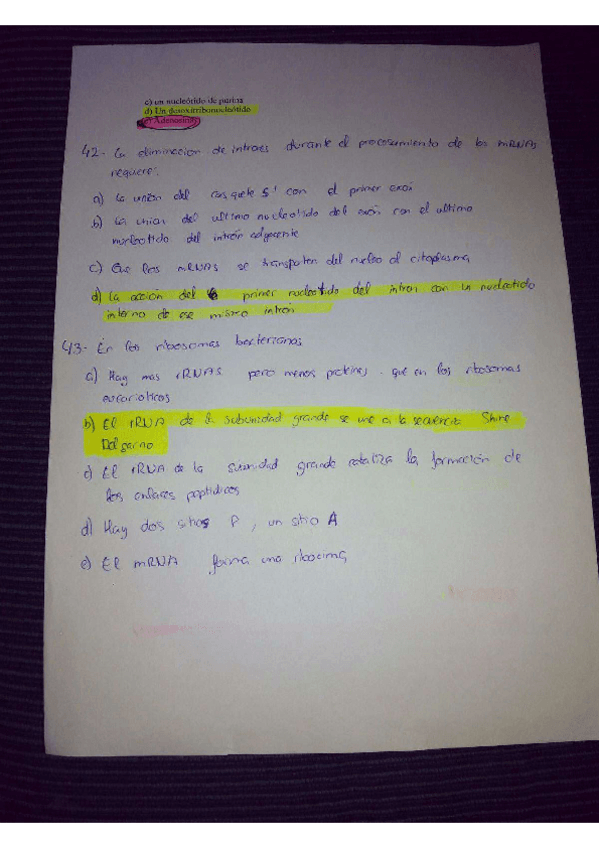 c) un nucleótido de purina
d) Un desoxirribonucleótido
Adenosina
42- La eliminación de intrones durante el procesamiento de los mRNAs
requiere:
a) La unión del casquete 5' con el primer exón
b) La unión del ultimo nucleotido del exón con el ultimo
nucleotido del intrón adyacente
c) Que los mRNAS se transporten del nucleo al citoplasma
d) La acción del primer nucleotido del intron con un nucleotido
interno de ese mismo intrón
43- En los ribosomas bacterianos
a) Hay mas rRNAS pero menos proteinas que en los ribosomas
eucarioticos
b) El rRNA de la subunidad grande se une a la secuencia Shine
Dalgarno
c) El rRNA de la subunidad grande cataliza la formación de
los enlaces peptidicos
d) Hay dos sitios P, un sitio A
e) El mRNA forma una ribozima